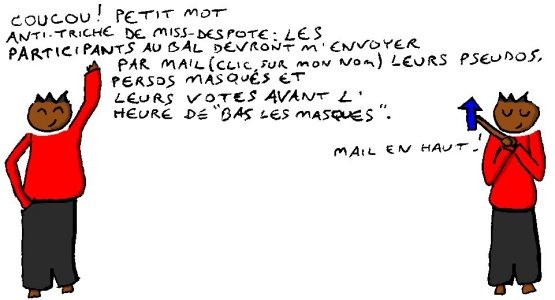 COUCOU! PETIT MOT
ANTI-TRICHE DE MISS-DESPOTE: LES
PARTICIPANTS AU BAL DEVRONT M'ENVOYER
PAR MAIL (CLIC SUR MON NOM) LEURS PSEUDOS,
PERSOS MASQUÉS ET
LEURS VOTES AVANT L'
HEURE DE "BAS LES MASQUES".
MAIL EN HAUT!